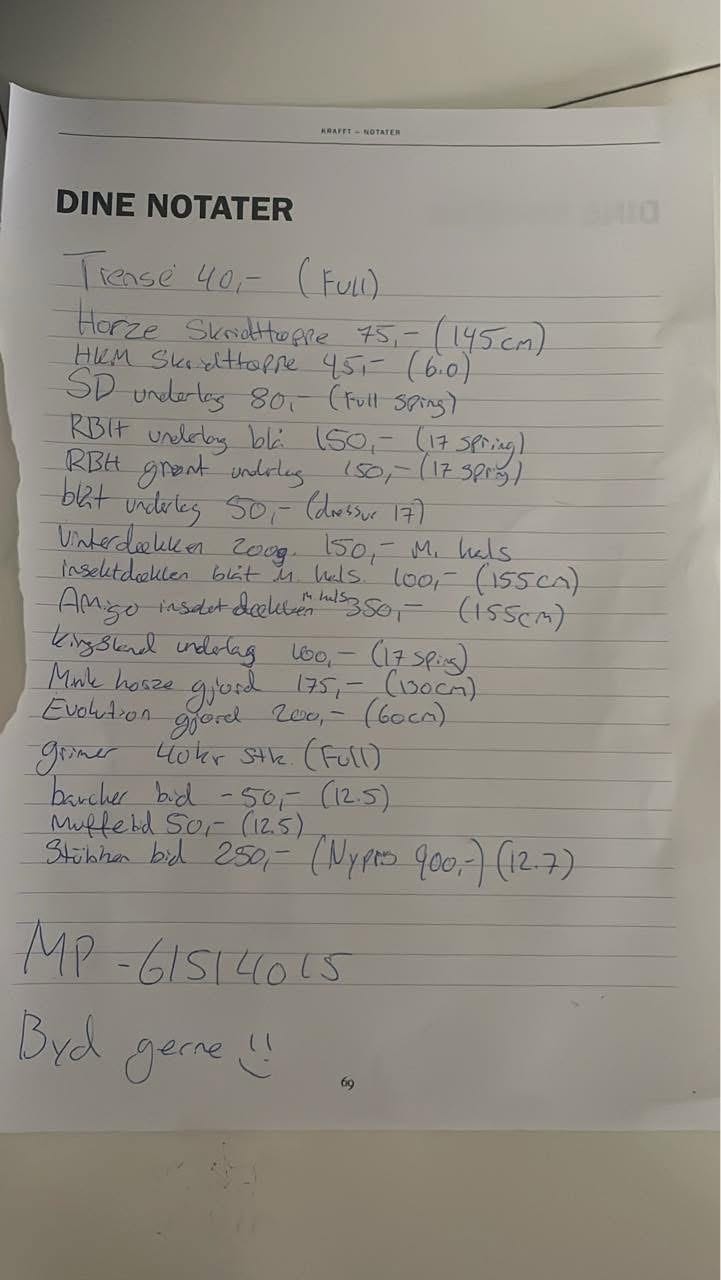 KRAFFT – NOTATER
DINE NOTATER
Trense 40,- (Full)
Horze Skridttæppe 75,- (145cm)
HKM Skridttæppe 45,- (6.0)
SD underlag 80,- (Full Spring)
RBH underlag blå 150,- (17 Spring)
RBH grønt underlag 150,- (17 Spring)
blåt underlag 50,- (dressur 17)
Vinterdækken 200g. 150,- M. hals
insektdækken blåt M. hals. 100,- (155cm)
AMigo insektdækken M hals 350,- (155cm)
kingsland underlag 100,- (17 Spring)
horze gjord 175,- (130cm)
Evolution gjord 200,- (60cm)
grimer 40kr Stk. (Full)
baucher bid - 50,- (12.5)
Muffebid 50,- (12.5)
Stübben bid 250,- (Nypris 900,-) (12.7)
MP - 61514015
Byd gerne !!
69